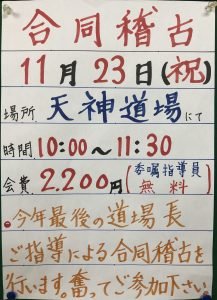 合同稽古
11月23日(祝)
場所 天神道場にて
時間 10:00〜11:30
会費 2.200円(委嘱指導員 無料)
●今年最後の道場長
ご指導による合同稽古を
行います。奮ってご参加下さい